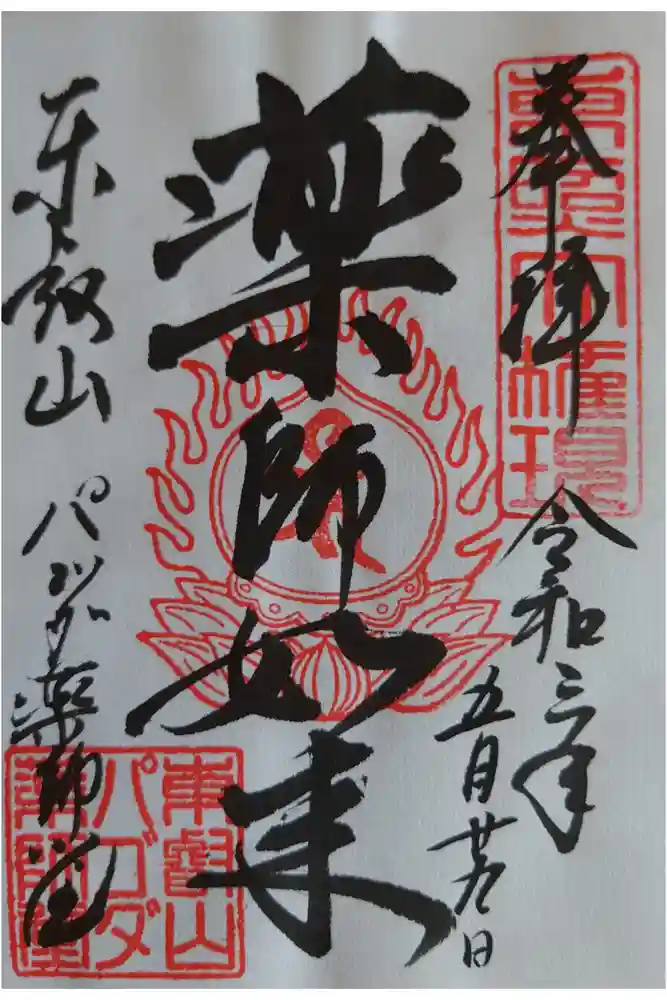 奉拝
東照大權現
令和三年
五月廿 日
薬師如来
東叡山 パゴダ薬師堂
東叡山
パゴダ
薬師堂